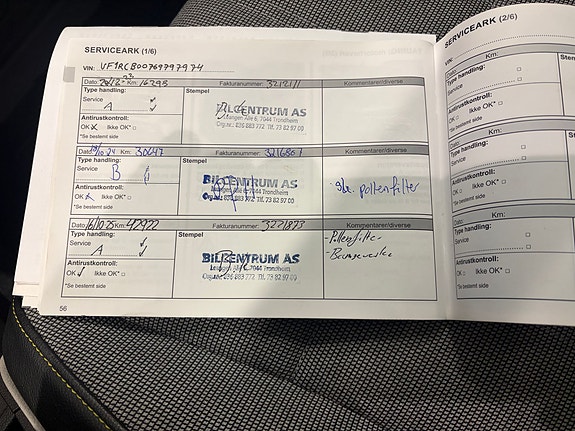 SERVICEARK (1/6)
VIN: VF1RCB00769797974
Dato: 20/12-23 Km: 16298 Fakturanummer: 3212171 Kommentarer/diverse
Type handling: Stempel
Service A
BILCENTRUM AS
7044 Trondheim
Antirustkontroll:
OK Ikke OK* □
*Se bestemt side
Km: 30647 Fakturanummer: 3216801 Kommentarer/diverse
Type handling: Stempel
Service B
BILCENTRUM AS
7044 Trondheim
pollenfilter
Antirustkontroll:
OK Ikke OK* □
*Se bestemt side
Dato: 16/10 25 Km: 42922 Fakturanummer: 3221873 Kommentarer/diverse
Type handling: Stempel
Service A
BILCENTRUM AS
7044 Trondheim
Pollenfilter
Bremsevæske
Antirustkontroll:
OK Ikke OK* □
*Se bestemt side
56
SERVICEARK (2/6)
VIN:
Dato: Km:
Type handling:
Service
Antirustkontroll:
OK □ Ikke OK* □
*Se bestemt side
Dato: Km:
Type handling:
Service
Antirustkontroll:
OK □ Ikke OK* □
*Se bestemt side
Dato: Km:
Type handling:
Service
Antirustkontroll:
OK □ Ikke OK* □
*Se bestemt side